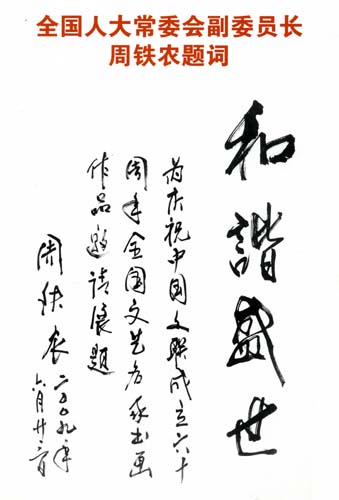 全国人大常委会副委员长
周铁农题词
和谐盛世
为庆祝中国文联成立六十
周年全国文艺名家书画
作品邀请展题
周铁农
二〇〇九年
六月廿二日